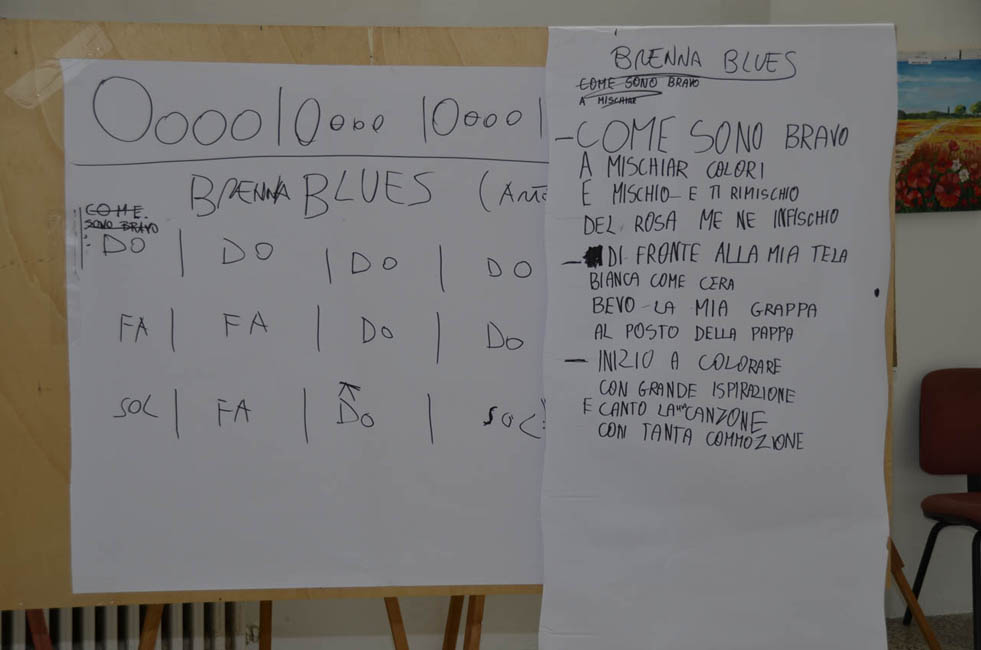 BRENNA BLUES (Anto
COME
SONO BRAVO
DO | DO | DO | DO
FA | FA | DO | DO
SOL | FA | DO | SOL
BRENNA BLUES
COME SONO BRAVO
A MISCHIAR
- COME SONO BRAVO
A MISCHIAR COLORI
E MISCHIO E TI RIMISCHIO
DEL ROSA ME NE INFISCHIO
- DI FRONTE ALLA MIA TELA
BIANCA COME CERA
BEVO LA MIA GRAPPA
AL POSTO DELLA PAPPA
- INIZIO A COLORARE
CON GRANDE ISPIRAZIONE
E CANTO LA CANZONE
CON TANTA COMMOZIONE